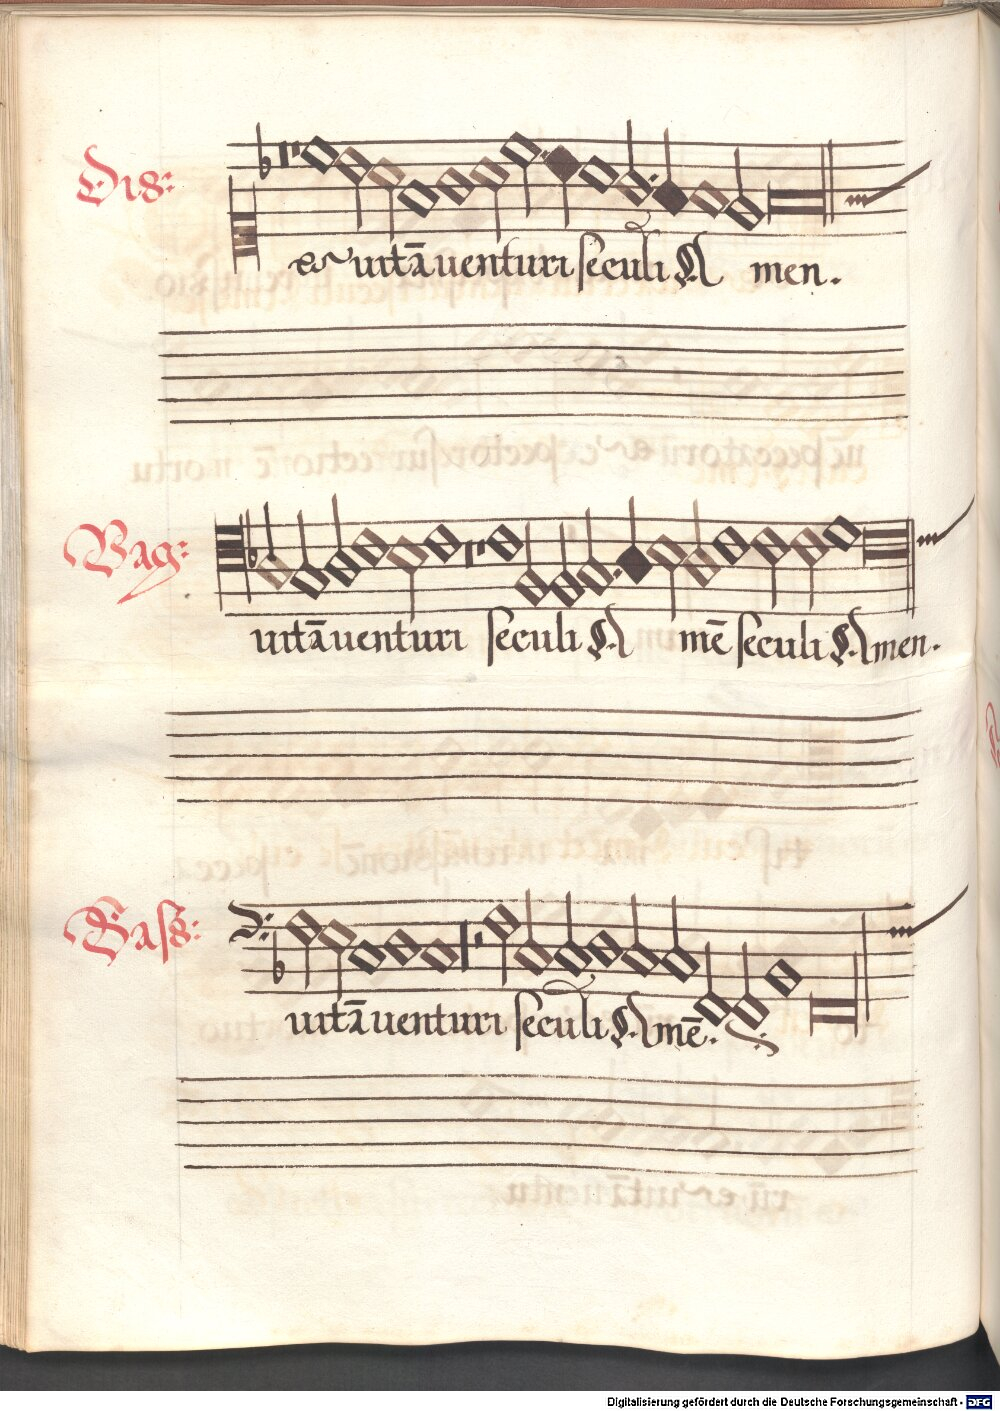 Dis:
& uitā uenturi seculi A men.
Vag:
uitā uenturi seculi A mē seculi Amen.
Bass:
uitā uenturi seculi Amē.
Digitalisierung gefördert durch die Deutsche Forschungsgemeinschaft - DFG